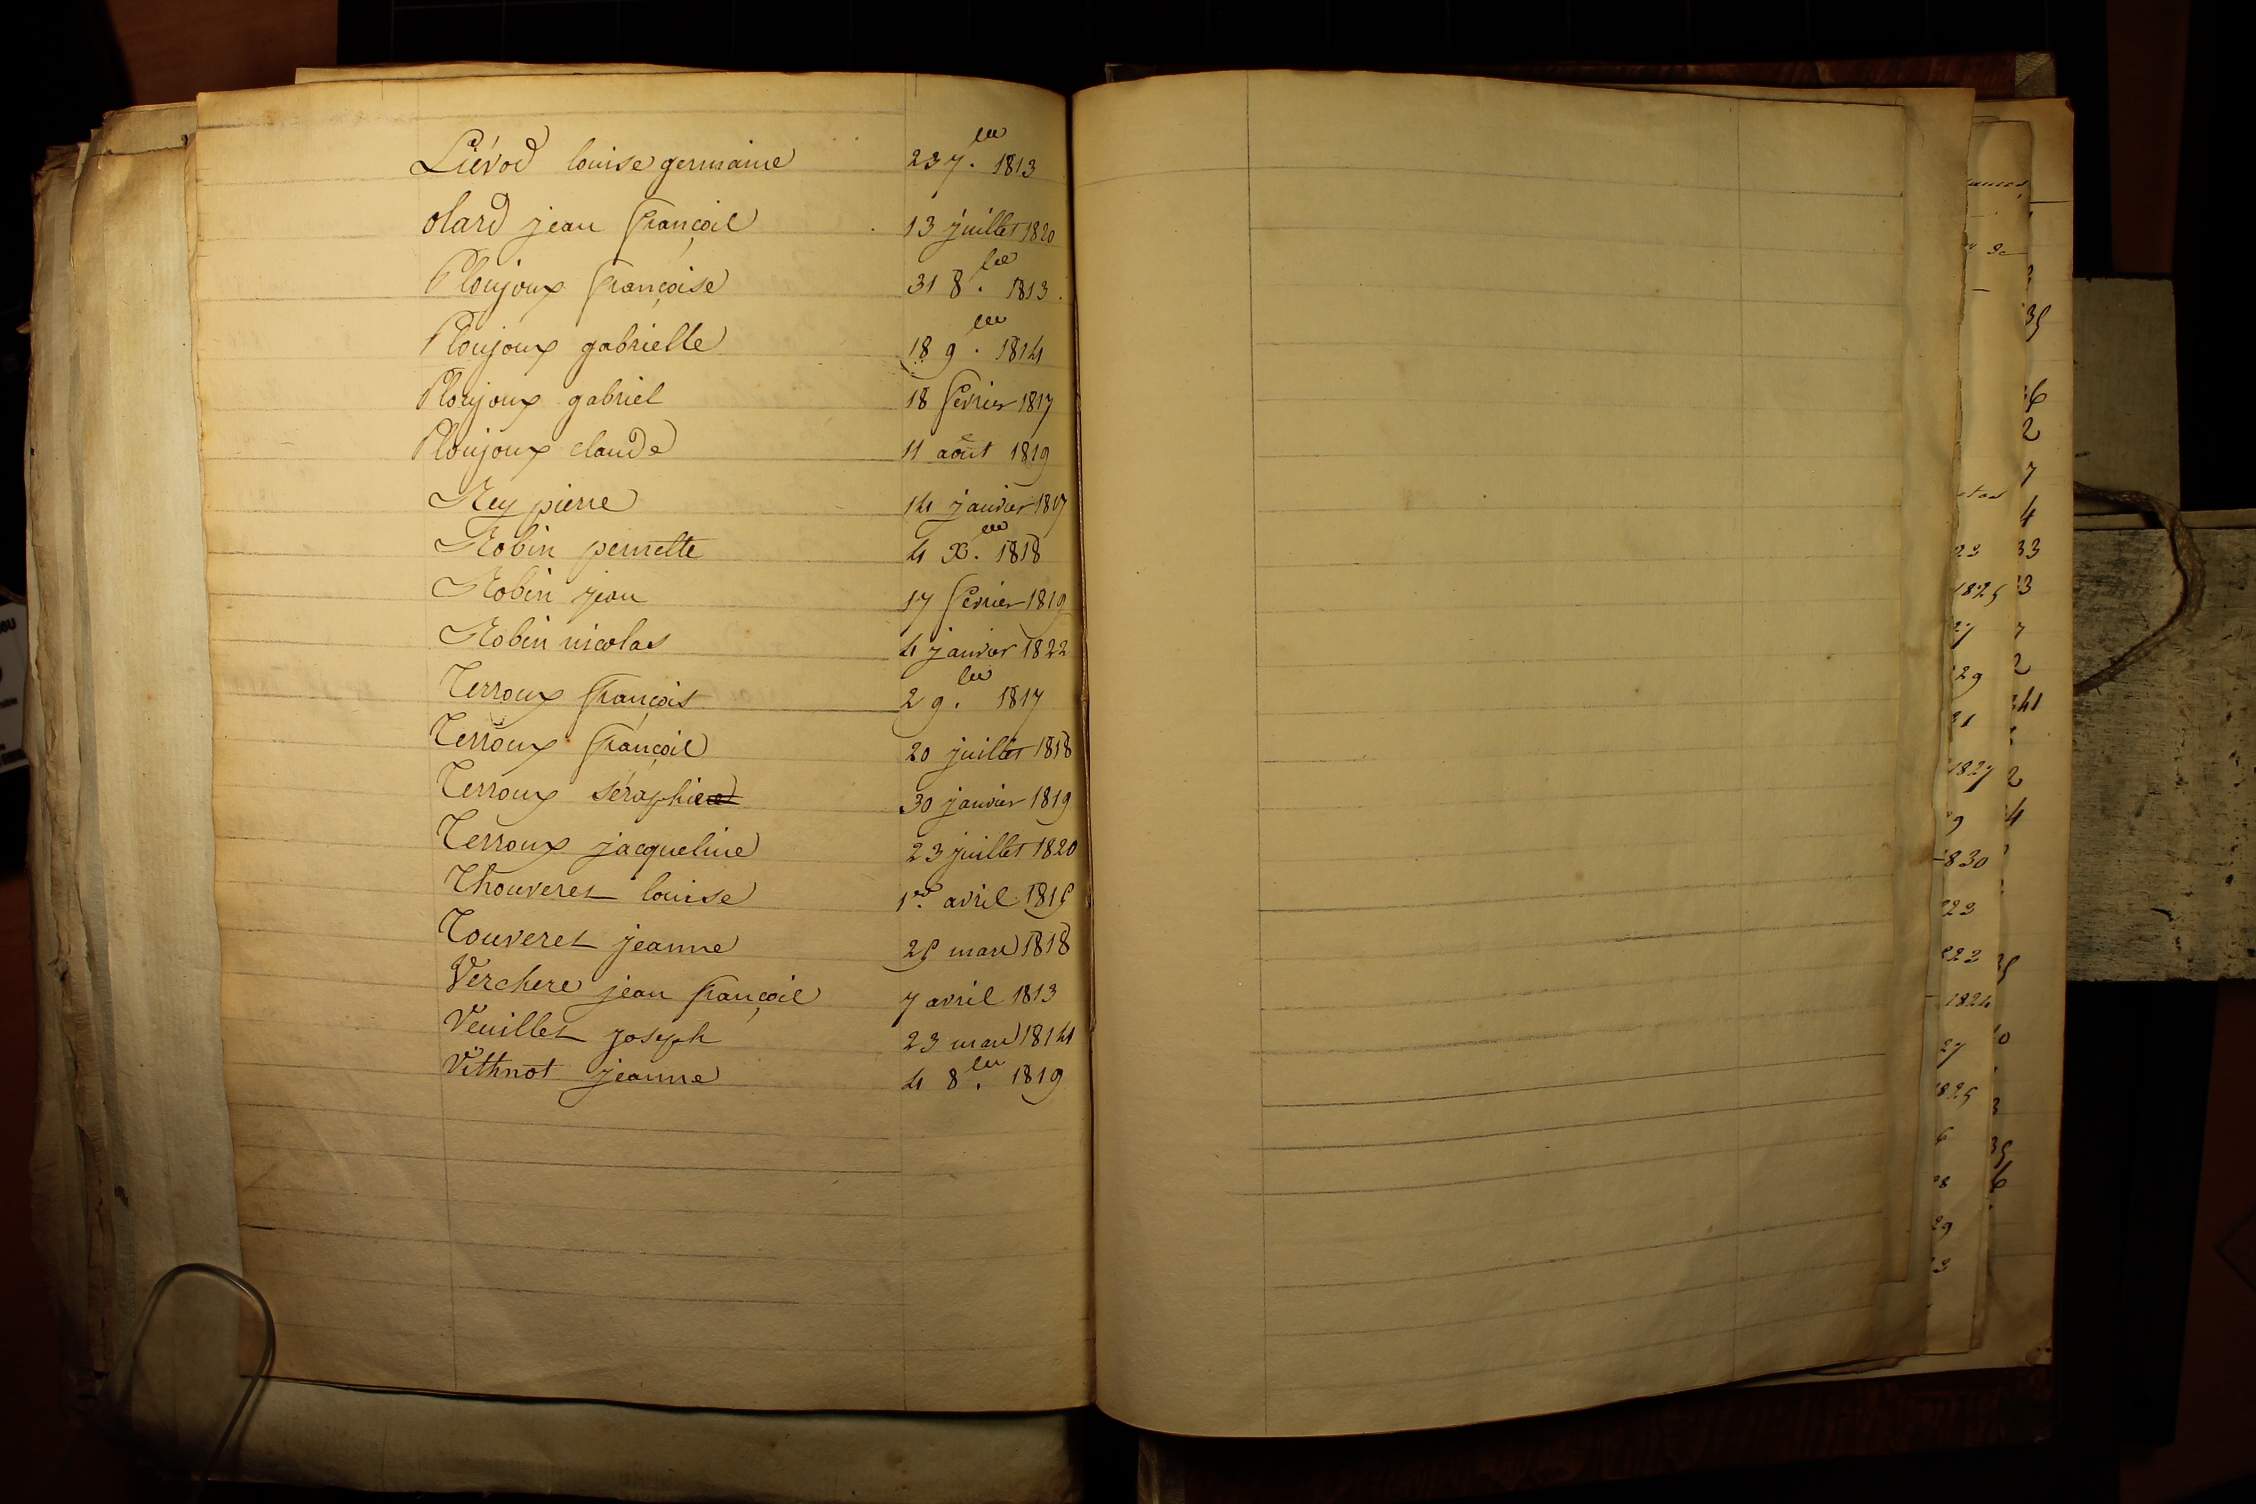 Liévod louise germaine 23 7.bre 1813
olard jean françois 13 juillet 1820
Ploujoux françoise 31 8.bre 1813.
Ploujoux gabrielle 18 9.bre 1814
Ploujoux gabriel 18 fevrier 1817
Ploujoux claude 11 août 1819
Rey pierre 14 janvier 1817
Robin pernette 4 X.bre 1818
Robin jean 17 fevrier 1819
Robin nicolas 4 janvier 1822
Terroux françois 2 9.bre 1817
Terroux françois 20 juillet 1818
Terroux séraphie 30 janvier 1819
Terroux jacqueline 23 juillet 1820
Thouveret louise 1er avril 1815
Touveret jeanne 25 mars 1818
Verchere jean françois 7 avril 1813
Veuillet joseph 23 mars 1814
Vithnot jeanne 4 8.bre 1819
1825
27
29
1827
830
823
1824
27
1825
29